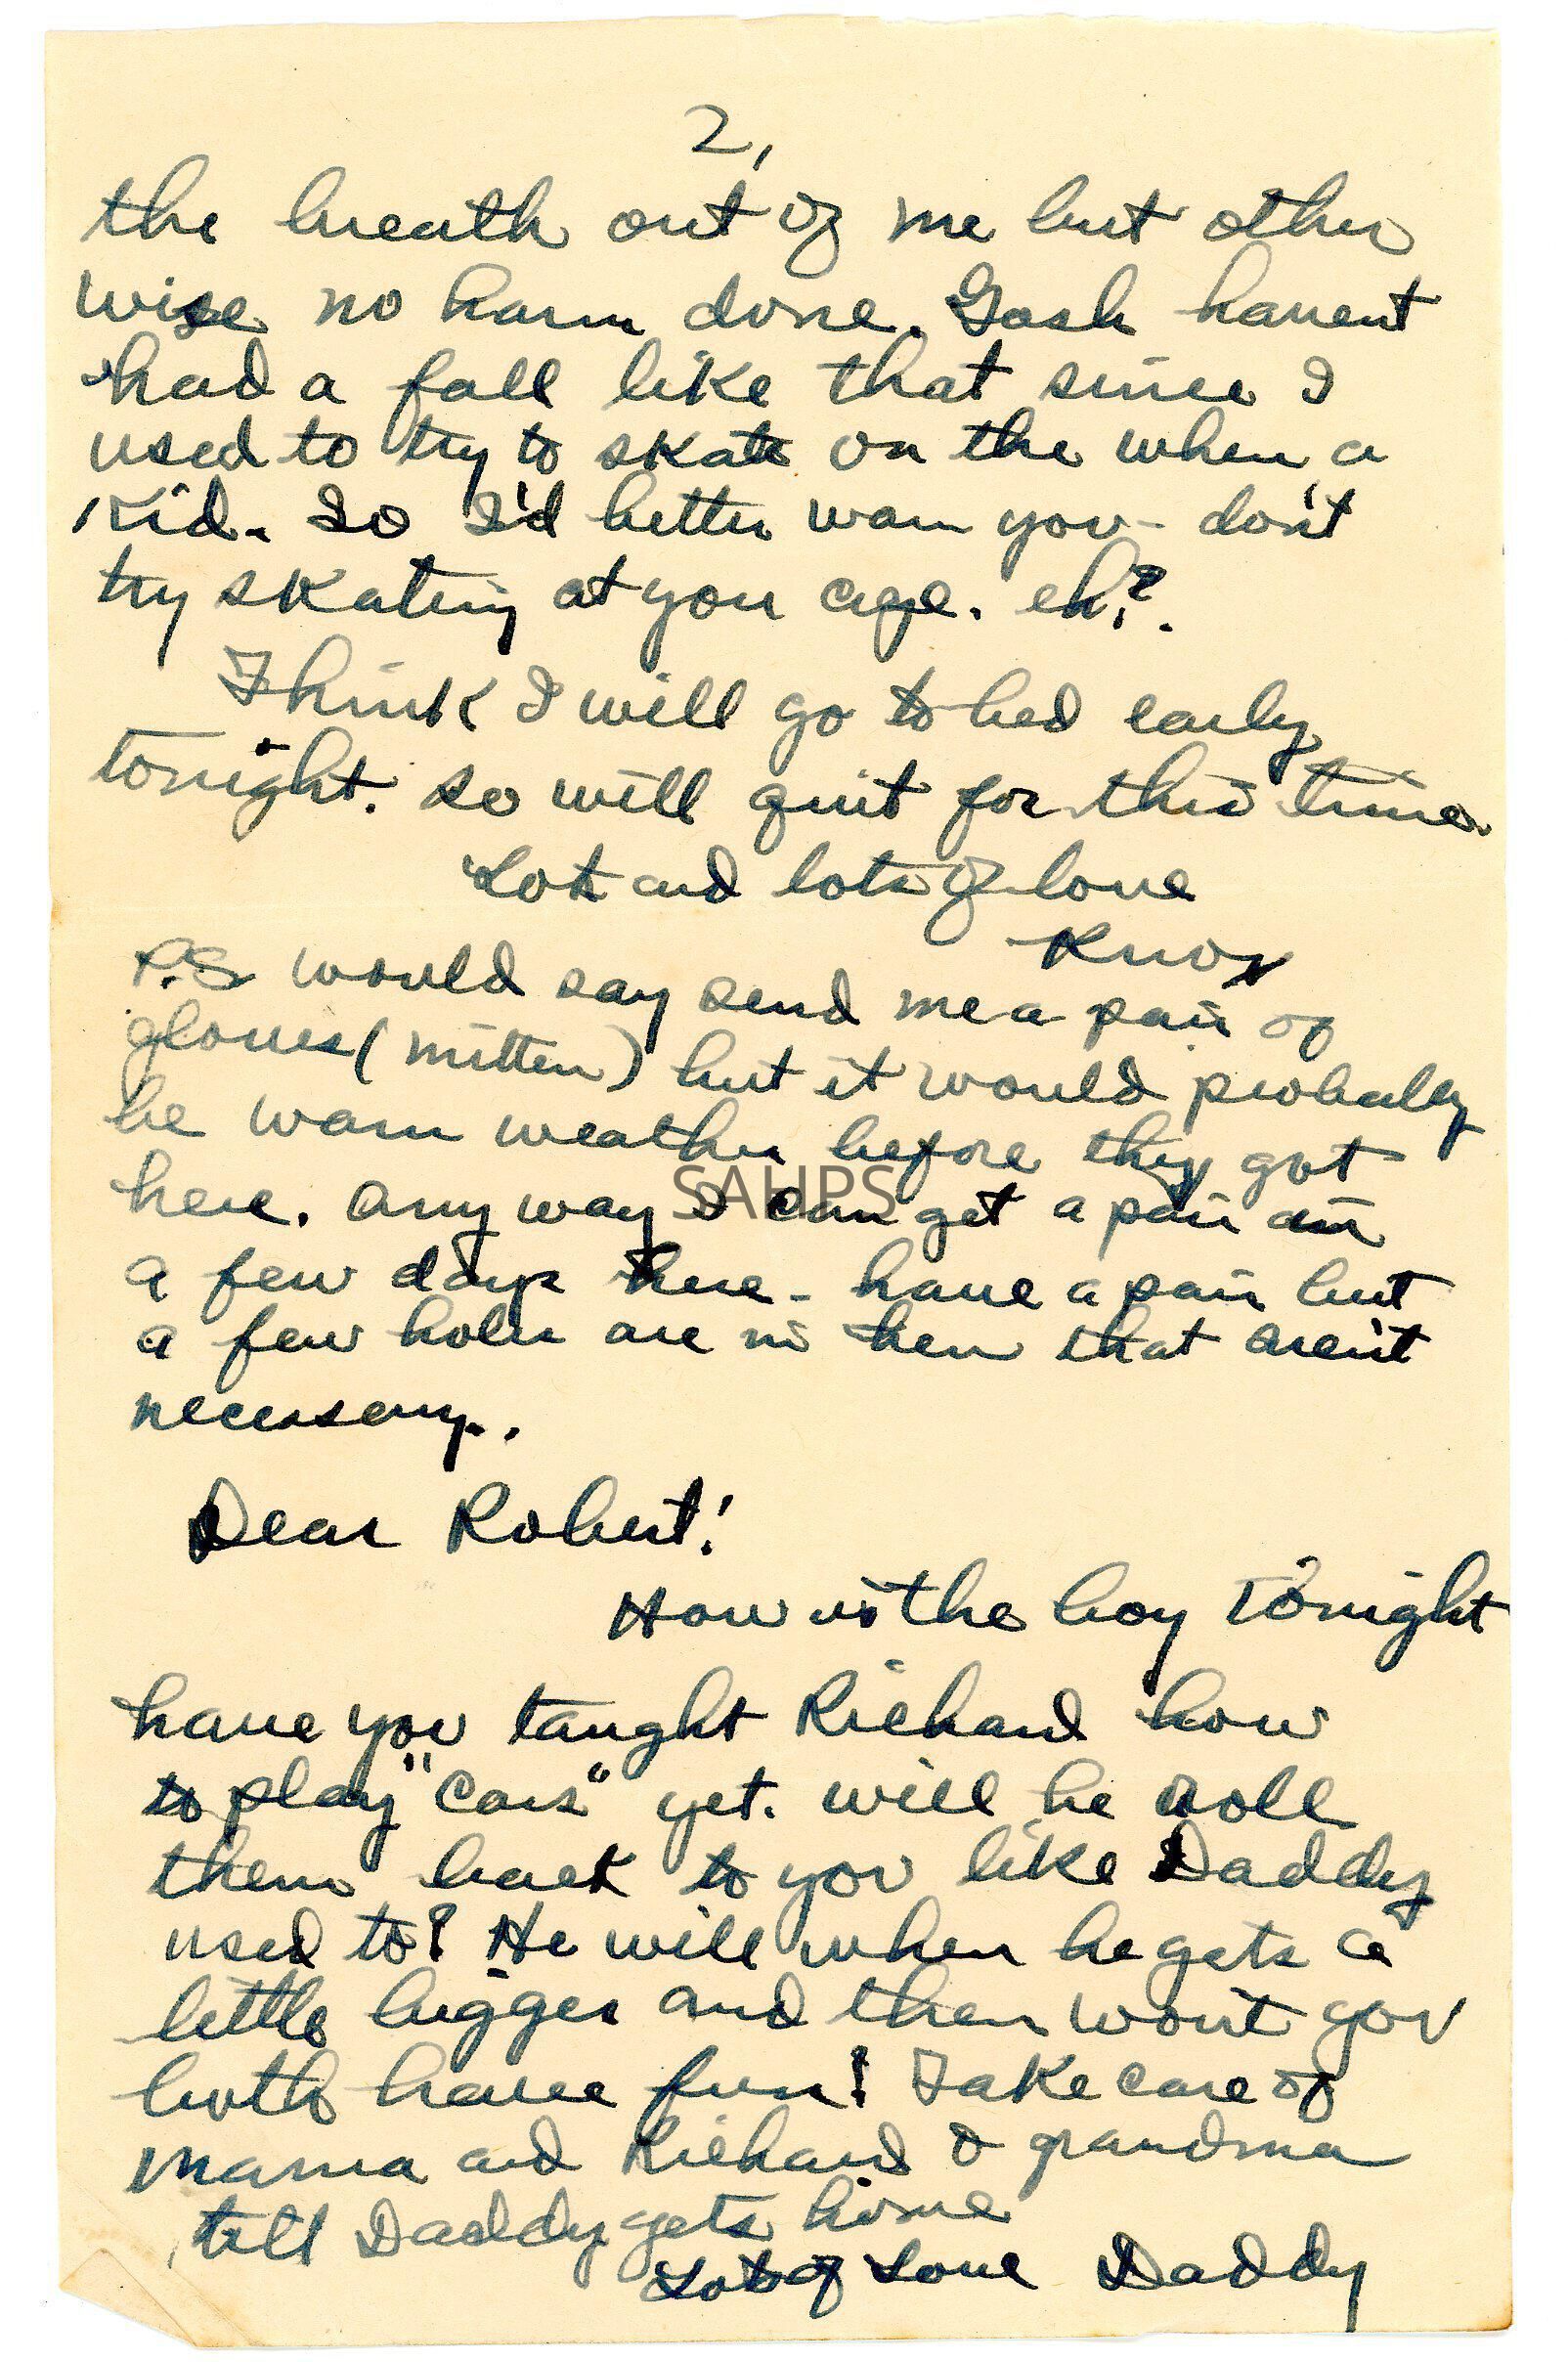 2,
the breath out of me but other
wise no harm done. Gosh havent
had a fall like that since I
used to try to skate on the when a
kid. So I'd better warn you - don't
try skating at you age. eh?.
Think I will go to bed early
tonight. so will quit for this time.
Lots and lots of love
Knox
P.S. would say send me a pair of
gloves (mitten) but it would probably
be warm weather before they got
here. Any way I can get a pair in
a few days here - have a pair but
a few holes are in them that aren't
necessary.
SAHPS
Dear Robert!
How is the boy tonight
have you taught Richard how
to play "cars" yet. will he roll
them back to you like Daddy
used to? He will when he gets a
little bigger and then won't you
both have fun! Take care of
Mama and Richard & grandma
till Daddy gets home
Lots of Love Daddy